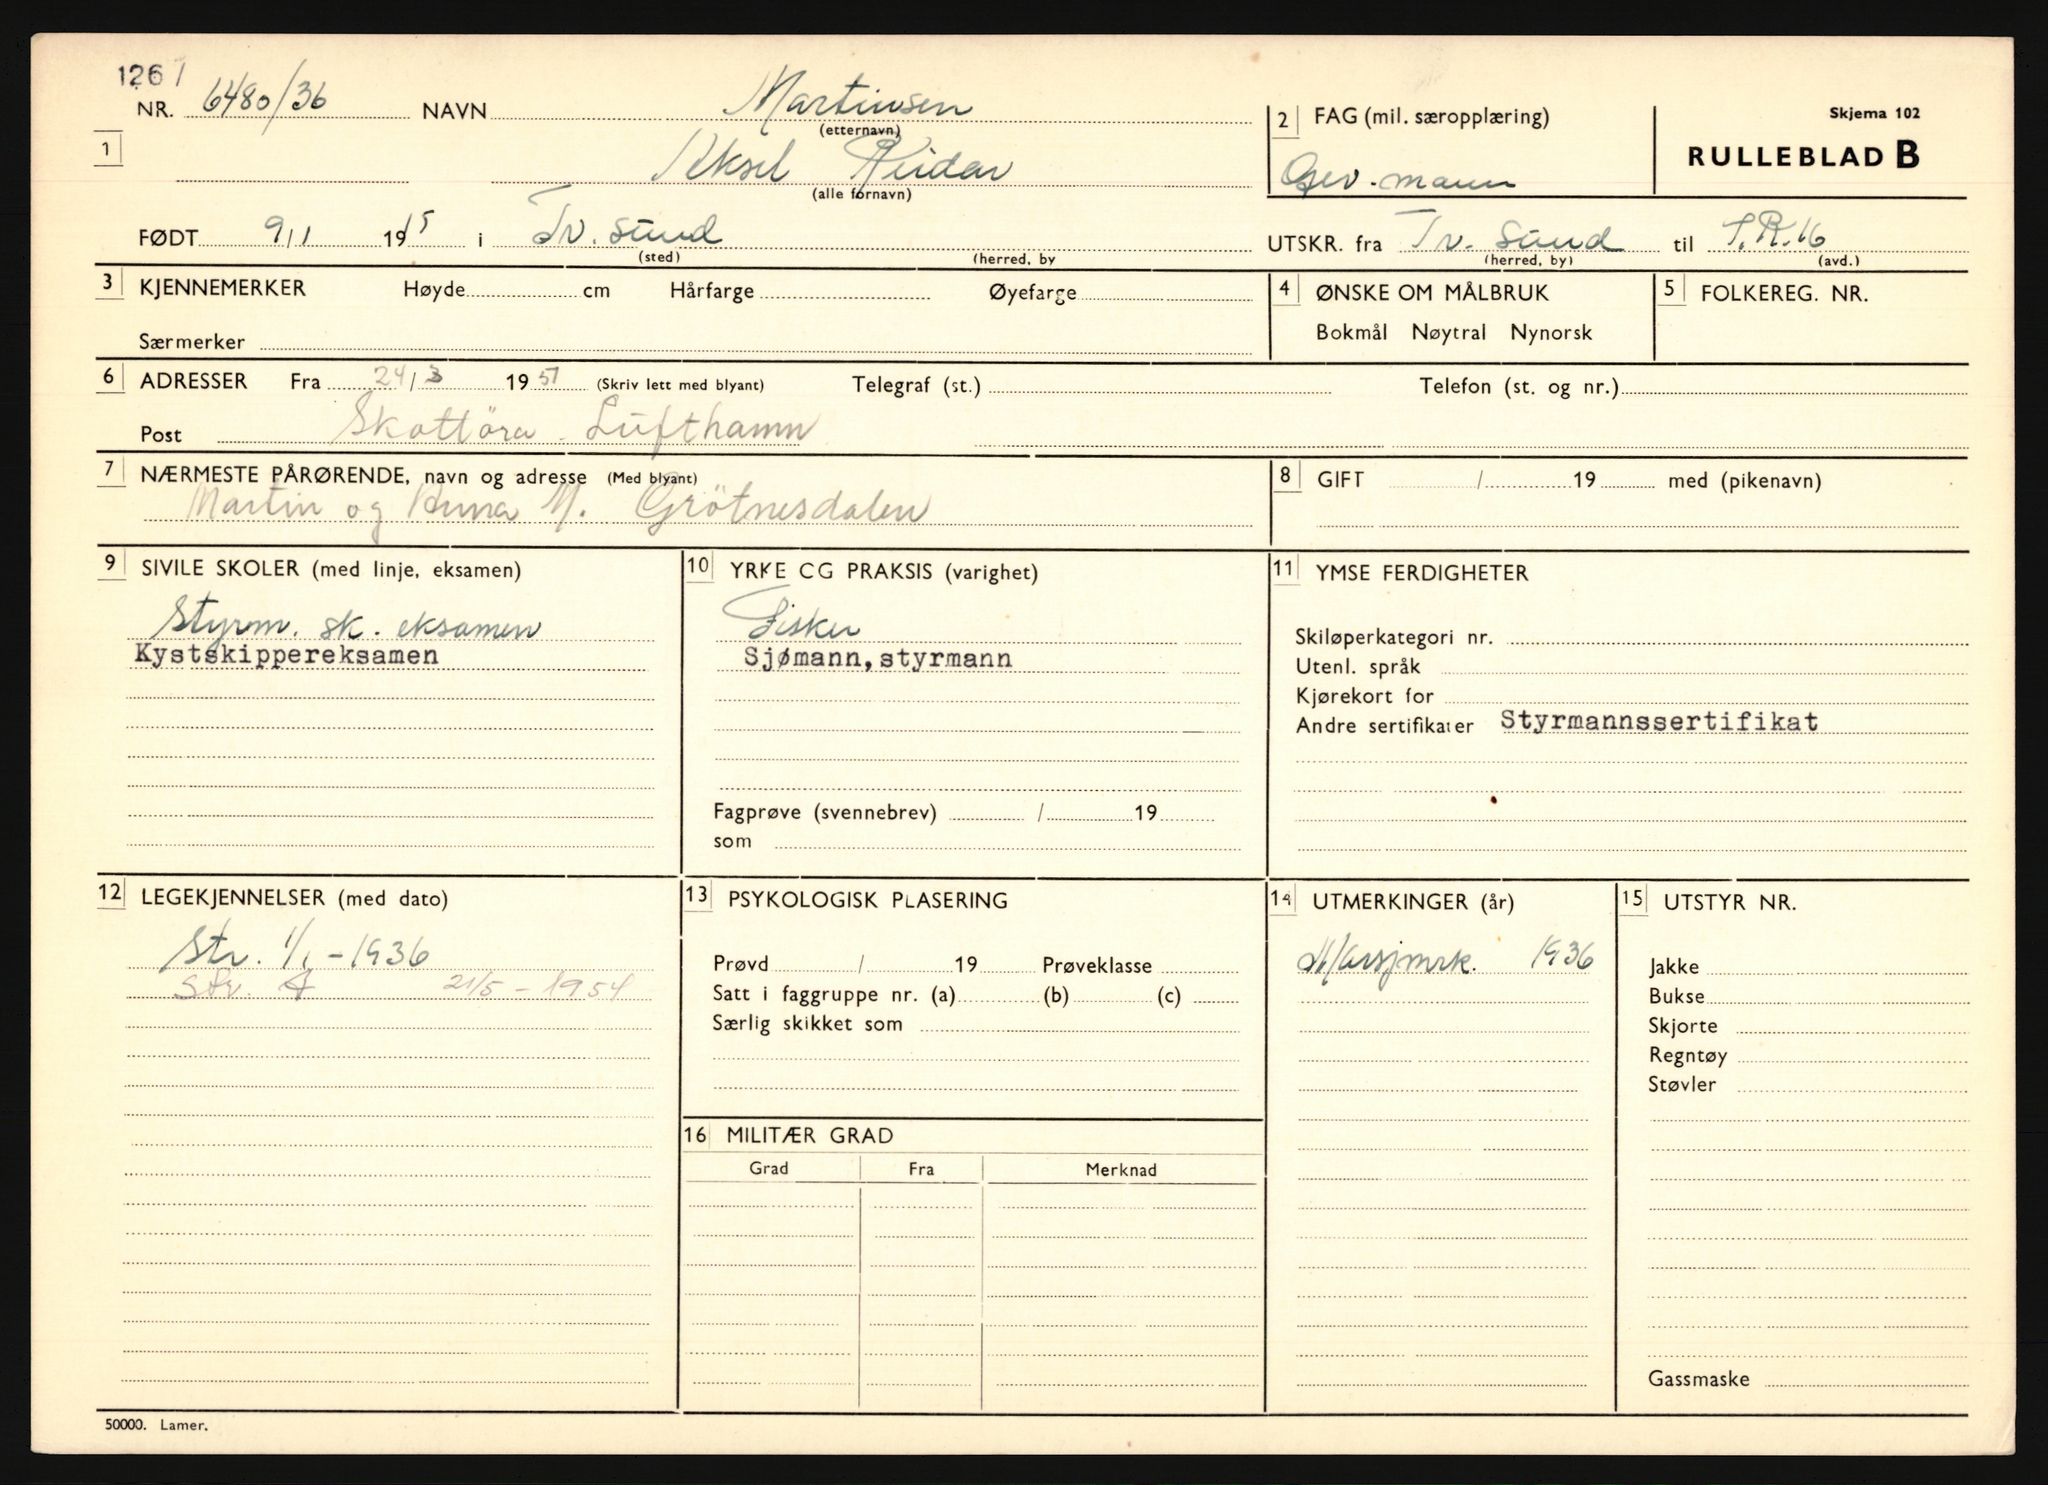 1267
NR. 6480/36 NAVN Martinsen
(etternavn)
1 Aksel Reidar
(alle fornavn)
2 FAG (mil. særopplæring)
Gev. mann
Skjema 102
RULLEBLAD B
FØDT 9/1 1915 i Tv. sund
(sted) (herred, by
UTSKR. fra Tv. sund til I.R.16
(herred, by) (avd.)
3 KJENNEMERKER Høyde cm Hårfarge Øyefarge
Særmerker
4 ØNSKE OM MÅLBRUK
Bokmål Nøytral Nynorsk
5 FOLKEREG. NR.
6 ADRESSER Fra 24/3 1951 (Skriv lett med blyant) Telegraf (st.) Telefon (st. og nr.)
Post Skattöra Lufthamn
7 NÆRMESTE PÅRØRENDE, navn og adresse (Med blyant)
Martin og Anna M. Grötnesdalen
8 GIFT / 19 med (pikenavn)
9 SIVILE SKOLER (med linje, eksamen)
Styrm. sk. eksamen
Kystskippereksamen
10 YRKE CG PRAKSIS (varighet)
Fisker
Sjømann, styrmann
Fagprøve (svennebrev) / 19
som
11 YMSE FERDIGHETER
Skiløperkategori nr.
Utenl. språk
Kjørekort for
Andre sertifikater Styrmannssertifikat
12 LEGEKJENNELSER (med dato)
Str. 1/1 - 1936
Str. A 21/5 - 1954
13 PSYKOLOGISK PLASERING
Prøvd / 19 Prøveklasse
Satt i faggruppe nr. (a) (b) (c)
Særlig skikket som
14 UTMERKINGER (år)
Marsjmrk. 1936
15 UTSTYR NR.
Jakke
Bukse
Skjorte
Regntøy
Støvler
Gassmaske
16 MILITÆR GRAD
Grad Fra Merknad
50000. Lamer.